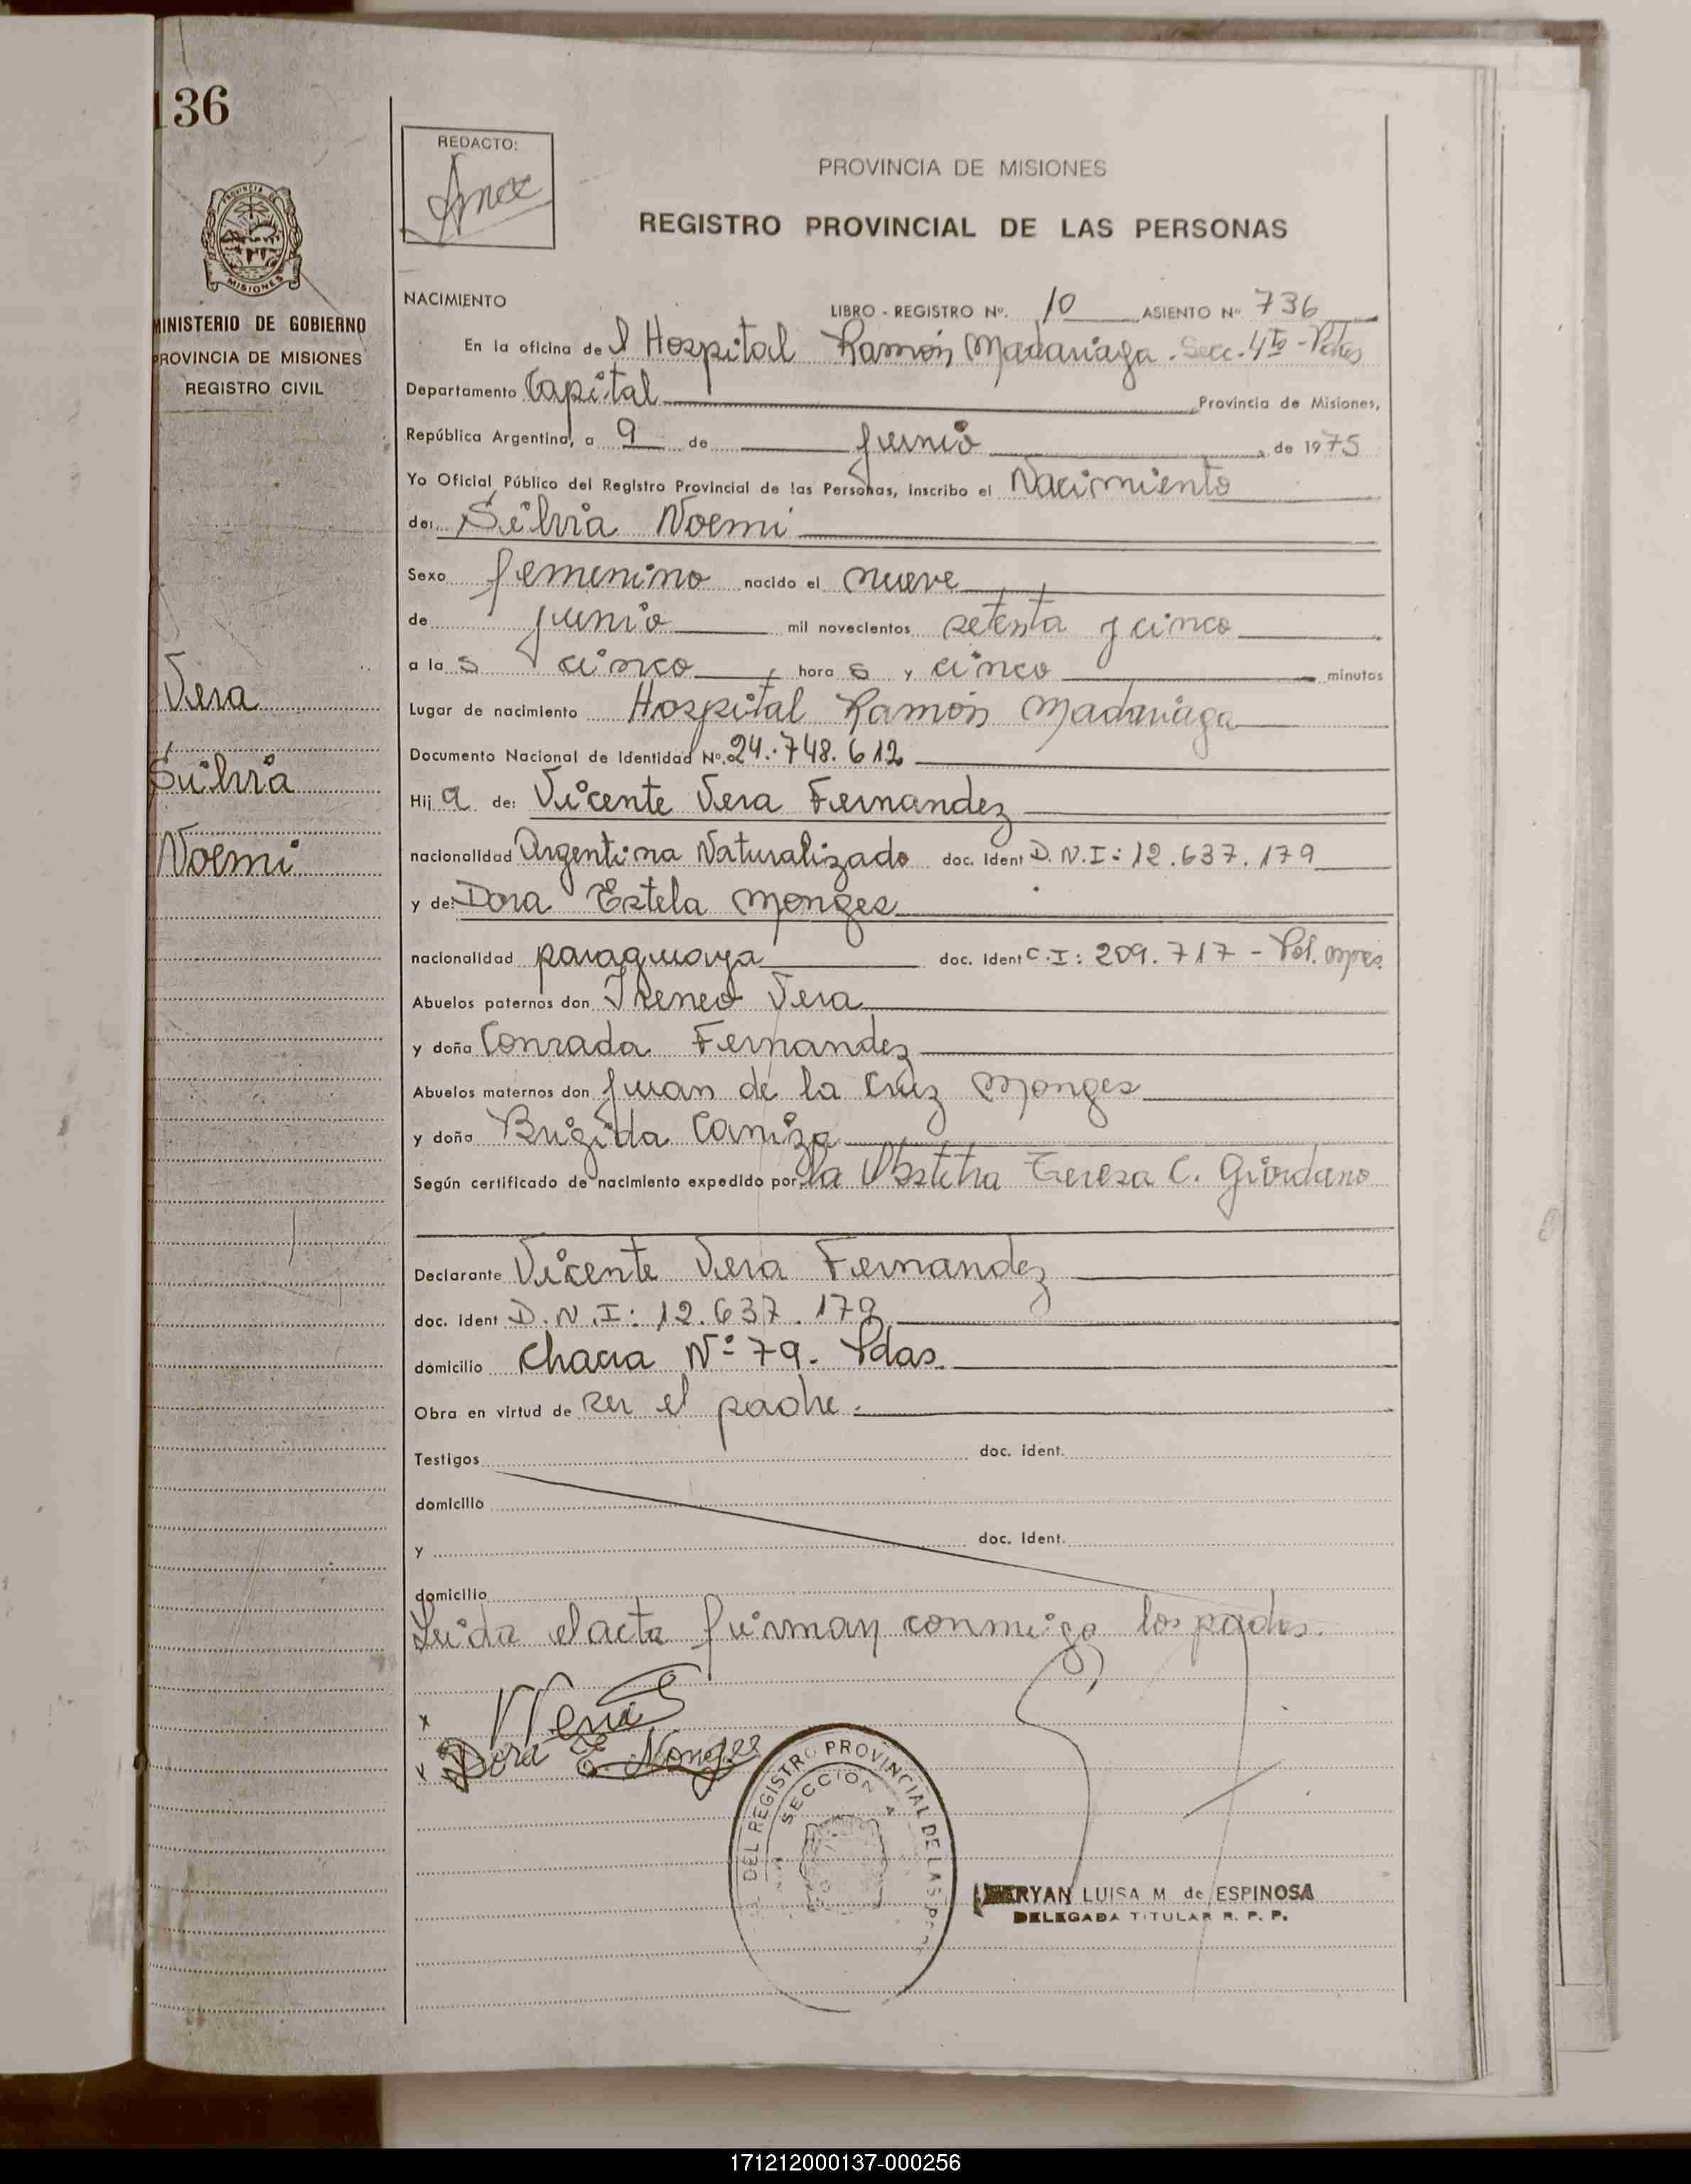 136
PROVINCIA DE
MISIONES
MINISTERIO DE GOBIERNO
PROVINCIA DE MISIONES
REGISTRO CIVIL
Vera
Silvia
Noemi
REDACTO:
PROVINCIA DE MISIONES
REGISTRO PROVINCIAL DE LAS PERSONAS
NACIMIENTO
LIBRO - REGISTRO Nº. 10 ASIENTO Nº 736
En la oficina de l Hospital Ramón Madariaga. Secc. 4ta - Pdas
Departamento Capital Provincia de Misiones,
República Argentina, a 9 de junio, de 1975
Yo Oficial Público del Registro Provincial de las Personas, inscribo el Nacimiento
de: Silvia Noemi
Sexo femenino nacido el nueve
de junio mil novecientos setenta y cinco
a la s cinco, hora s y cinco minutos
Lugar de nacimiento Hospital Ramón Madariaga
Documento Nacional de Identidad Nº. 24.748.612
Hij a de: Vicente Vera Fernandez
nacionalidad Argentina Naturalizado doc. ident D.N.I: 12.637.179
y de: Dora Estela Monges
nacionalidad paraguaya doc. ident C.I: 209.717 - Pol. Mnes.
Abuelos paternos don Ireneo Vera
y doña Conrada Fernandez
Abuelos maternos don Juan de la Cruz Monges
y doña Brigida Caniza
Según certificado de nacimiento expedido por la Obstetra Teresa C. Giordano
Declarante Vicente Vera Fernandez
doc. ident D.N.I: 12.637.179
domicilio Chacra Nº 79. Pdas.
Obra en virtud de ser el padre.
Testigos doc. ident.
domicilio
y doc. ident.
domicilio
Leida el acta firman conmigo los padres.
x VVera
x Dora E. Monges
DEL REGISTRO PROVINCIAL DE LAS PER
SECCION 4
MARYAN LUISA M. de ESPINOSA
DELEGADA TITULAR R. P. P.
171212000137-000256